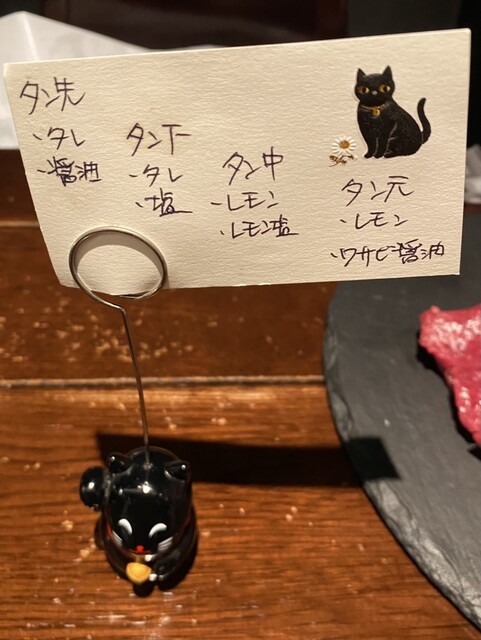 タン先
・タレ
・醤油
タン下
・タレ
・塩
タン中
・レモン
・レモン塩
タン元
・レモン
・ワサビ醤油